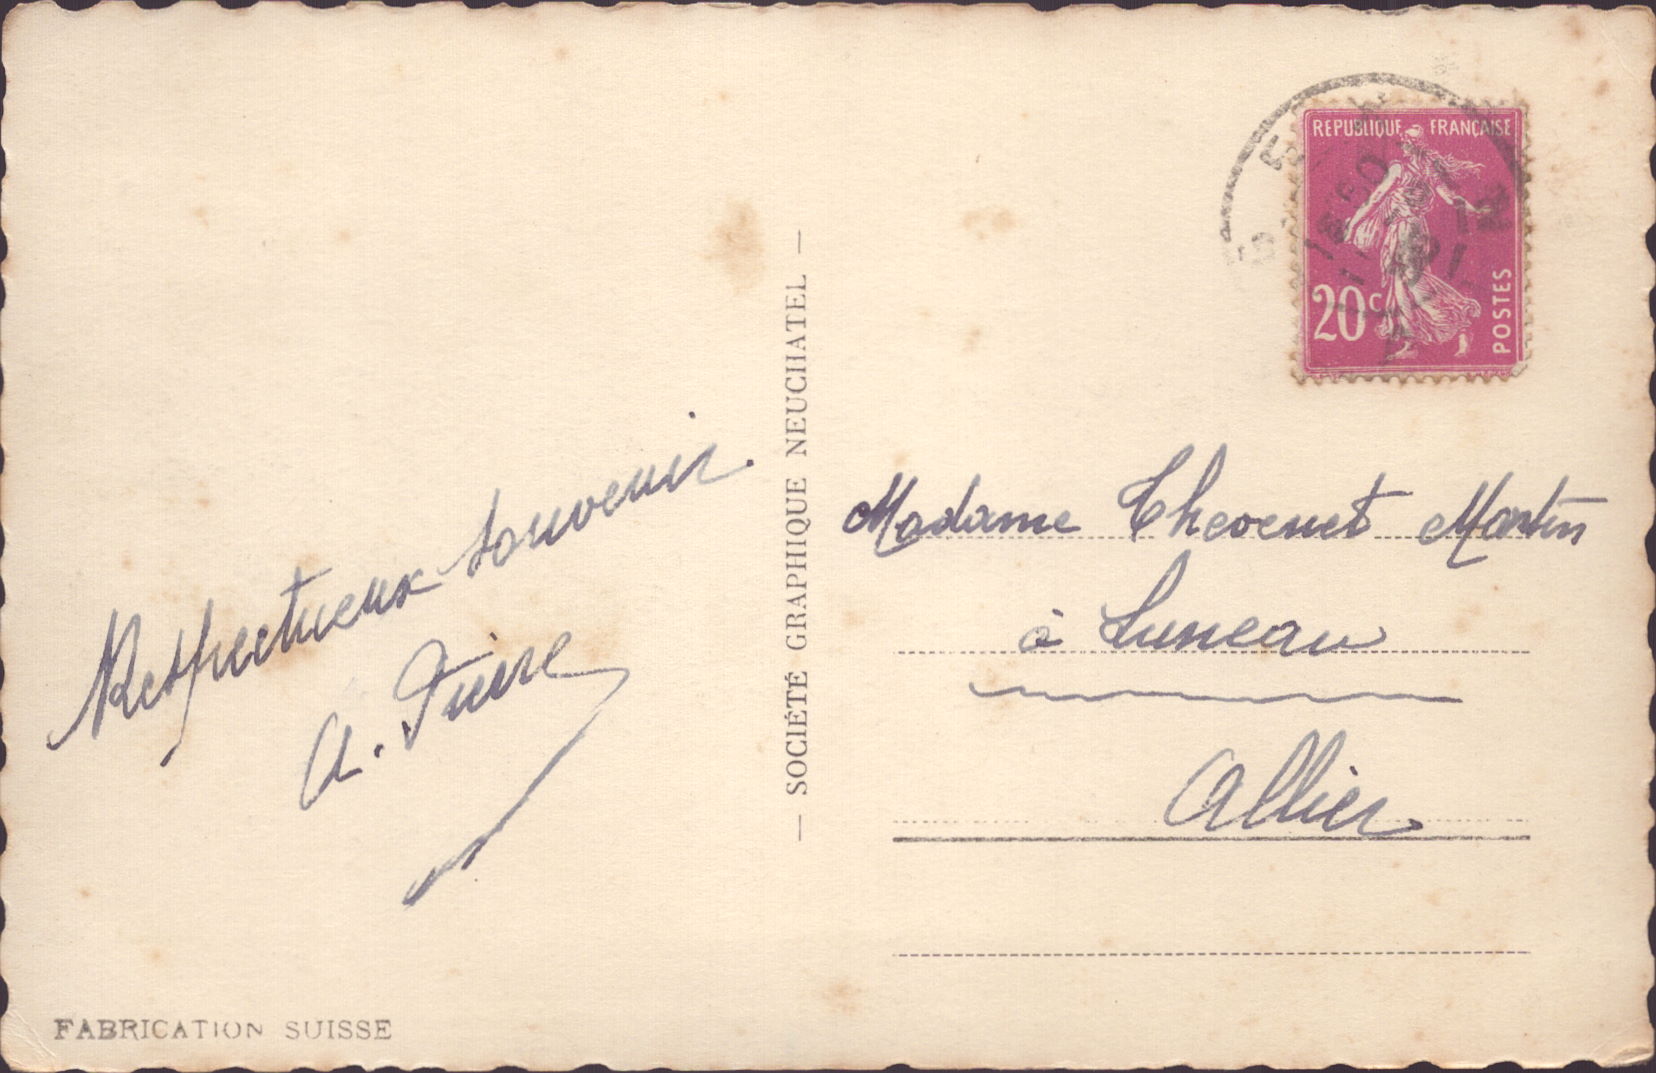 Respectueux souvenir.
A.
— SOCIÉTÉ GRAPHIQUE NEUCHATEL —
FABRICATION SUISSE
REPUBLIQUE FRANÇAISE
20c
POSTES
Madame Thevenet Martin
à Luneau
Allier